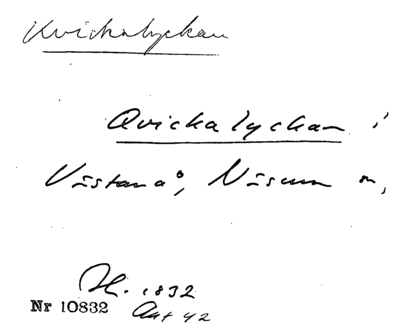 Kvickalyckan
Qvickalyckan i
Västanå, Näsum sn,
H. 1832
Nr 10832 Akt 42